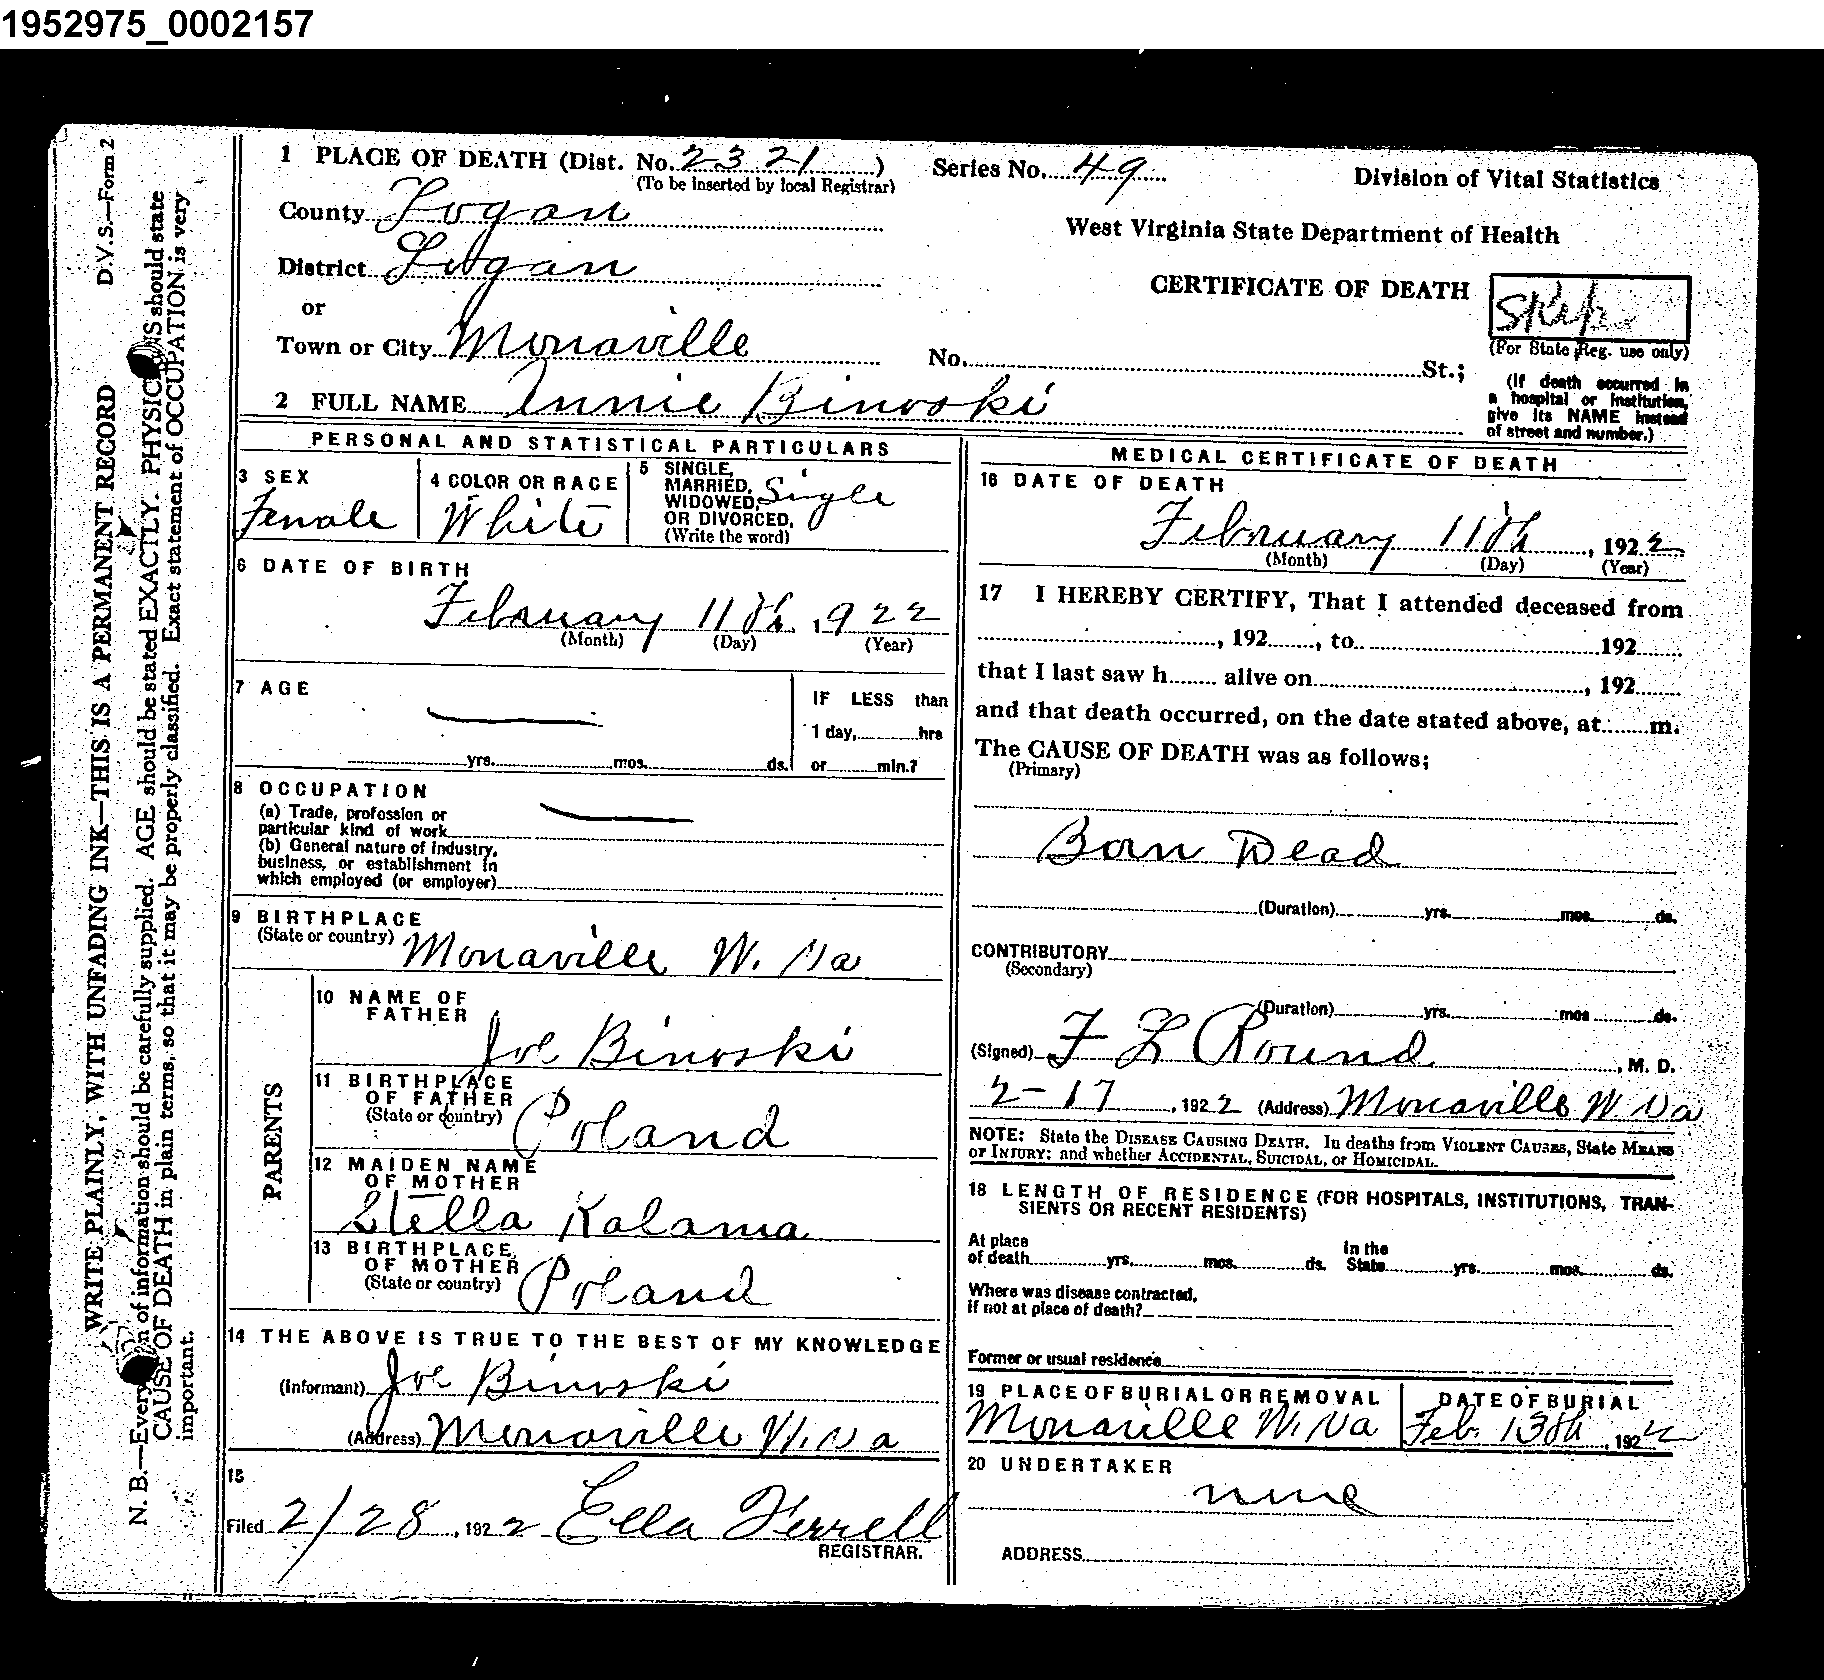 1952975_0002157
D.V.S.—Form 2
WRITE PLAINLY, WITH UNFADING INK—THIS IS A PERMANENT RECORD
N. B.—Every of information should be carefully supplied. AGE should be stated EXACTLY. PHYSIC NS should state
CAUSE OF DEATH in plain terms, so that it may be properly classified. Exact statement of OCCUPATION is very
important.
1 PLACE OF DEATH (Dist. No. 2321) Series No. 49
(To be inserted by local Registrar)
Division of Vital Statistics
County Logan
West Virginia State Department of Health
District Logan
CERTIFICATE OF DEATH
Skip
or
(For State Reg. use only)
Town or City Monaville No. St.;
(If death occurred in
a hospital or institution,
give its NAME instead
of street and number.)
2 FULL NAME Annie Binoski
PERSONAL AND STATISTICAL PARTICULARS
3 SEX
Female
4 COLOR OR RACE
White
5 SINGLE,
MARRIED,
WIDOWED,
OR DIVORCED,
(Write the word)
Sigle
6 DATE OF BIRTH
February 11th, 922
(Month) (Day) (Year)
7 AGE
IF LESS than
1 day, hrs
yrs. mos. ds. or min.?
8 OCCUPATION
(a) Trade, profession or
particular kind of work
(b) General nature of industry,
business, or establishment in
which employed (or employer)
9 BIRTHPLACE
(State or country) Monaville W. Va
PARENTS
10 NAME OF
FATHER
Joe Binoski
11 BIRTHPLACE
OF FATHER
(State or country) Poland
12 MAIDEN NAME
OF MOTHER
Stella Kalama
13 BIRTHPLACE
OF MOTHER
(State or country) Poland
14 THE ABOVE IS TRUE TO THE BEST OF MY KNOWLEDGE
(Informant) Joe Binoski
(Address) Monaville W. Va
15
Filed 2/28, 1922 Ella Ferrell
REGISTRAR.
MEDICAL CERTIFICATE OF DEATH
16 DATE OF DEATH
February 11th, 1922
(Month) (Day) (Year)
17 I HEREBY CERTIFY, That I attended deceased from
, 192 , to 192
that I last saw h alive on , 192
and that death occurred, on the date stated above, at m.
The CAUSE OF DEATH was as follows;
(Primary)
Born Dead
(Duration) yrs. mos. ds.
CONTRIBUTORY
(Secondary)
(Duration) yrs. mos ds.
(Signed) F L Round, M. D.
2-17, 1922 (Address) Monaville W Va
NOTE: State the DISEASE CAUSING DEATH. In deaths from VIOLENT CAUSES, State MEANS
OF INJURY; and whether ACCIDENTAL, SUICIDAL, or HOMICIDAL.
18 LENGTH OF RESIDENCE (FOR HOSPITALS, INSTITUTIONS, TRAN-
SIENTS OR RECENT RESIDENTS)
At place
of death yrs. mos. ds.
In the
State yrs. mos. ds.
Where was disease contracted,
if not at place of death?
Former or usual residence
19 PLACE OF BURIAL OR REMOVAL
Monaville W. Va
DATE OF BURIAL
Feb. 13th, 1922
20 UNDERTAKER
none
ADDRESS